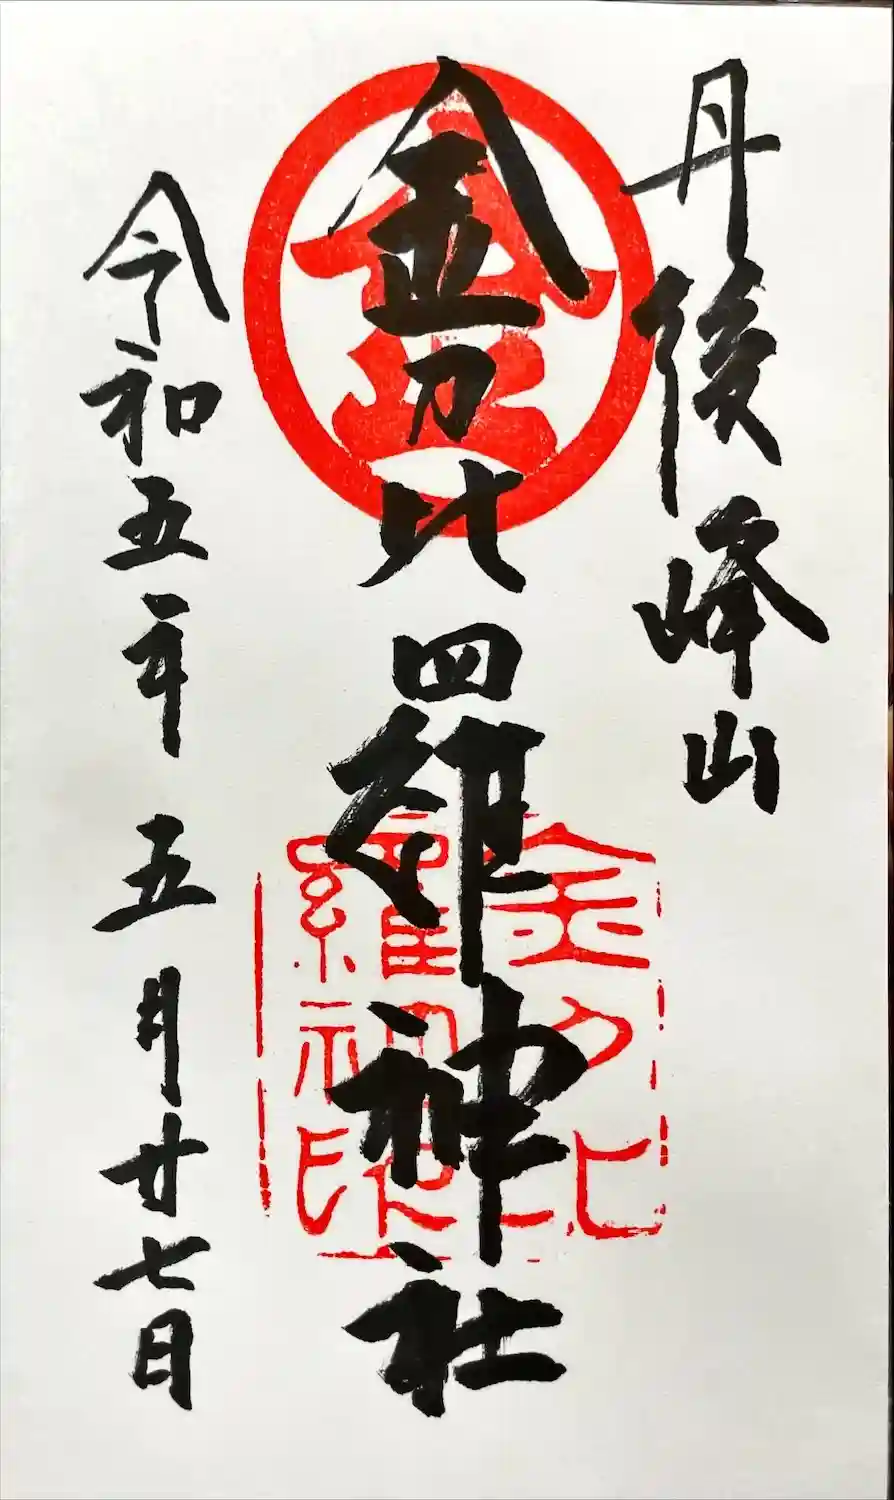 丹後峰山
金刀比羅神社
令和五年五月廿七日
金
金刀比羅神社印